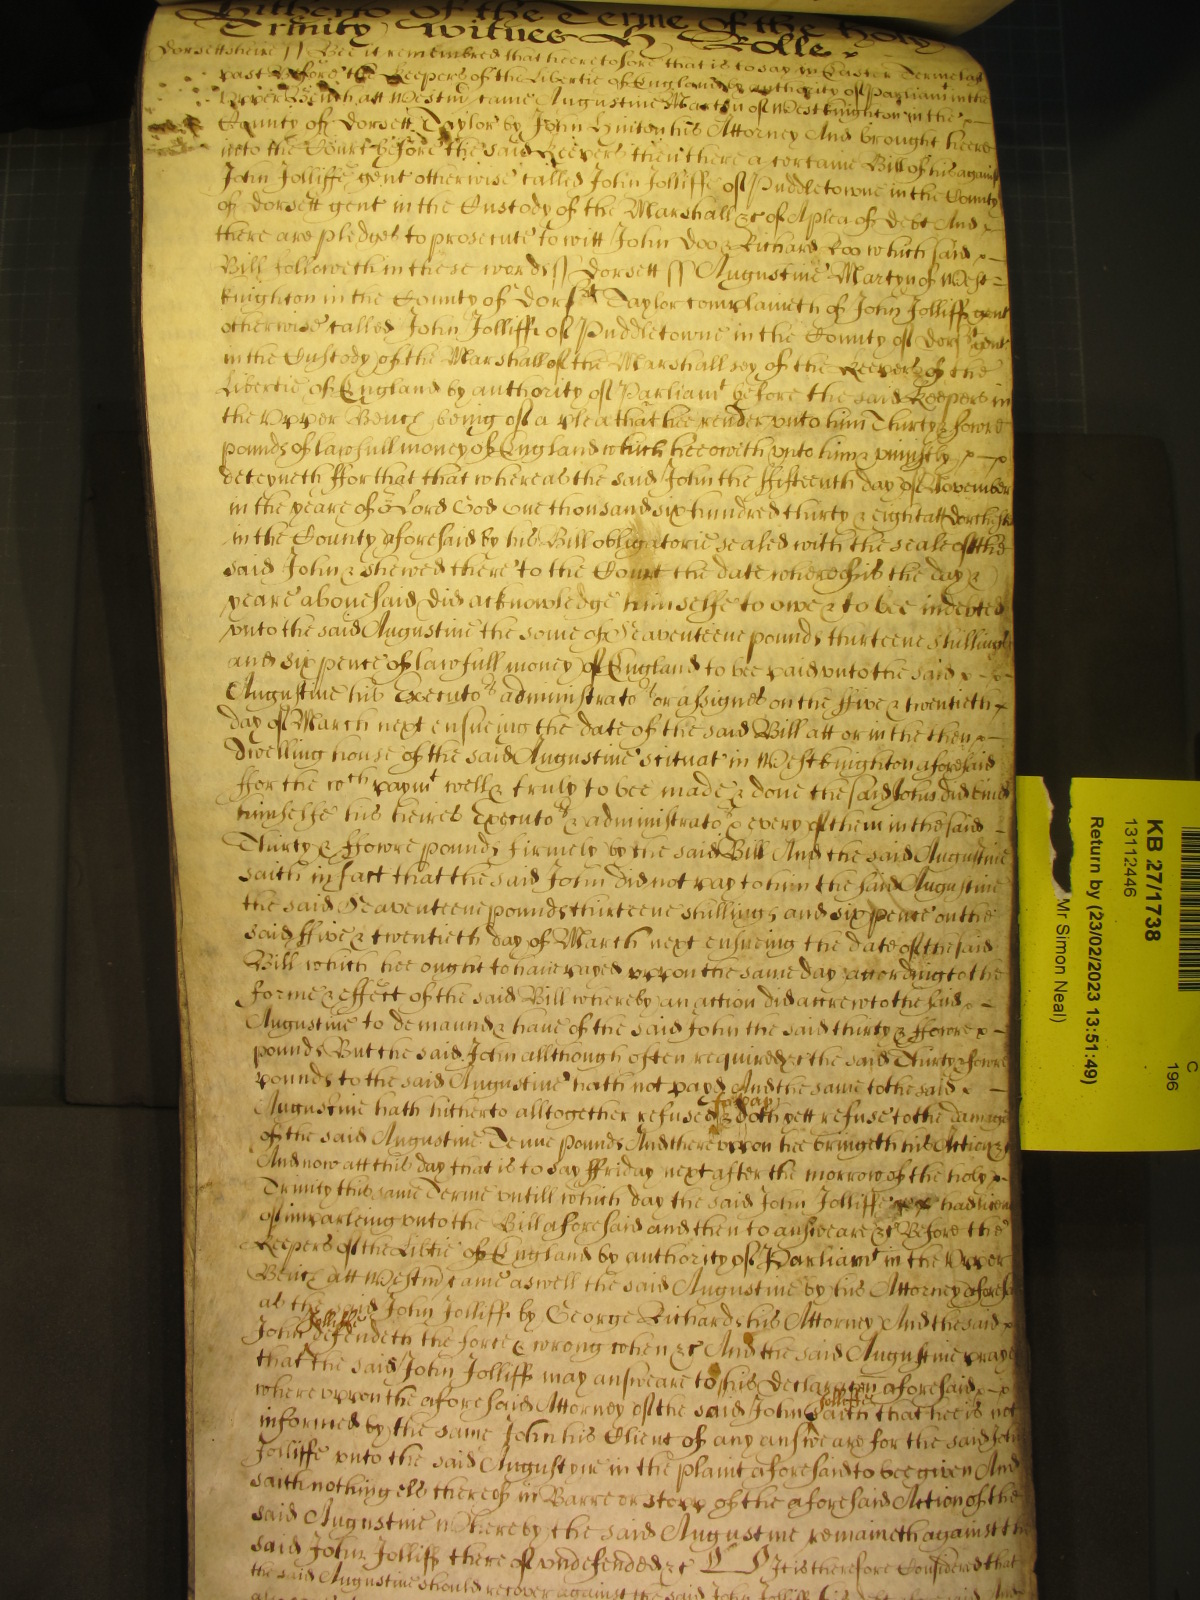 Hitherto of the Terme of the holy
Trinity Witnes H Rolle
Dorsettsheire // Bee it remembred that heeretofore that is to say in Easter Terme last
past Before the Keepers of the Libertie of England by authority of Parliamt in the
Upper Bench att Westm came Augustine Martyn of West knighton in the
County of Dorsett Taylor by John Hinton his Attorney And brought heere
into the Court before the said Keepers then there a certaine Bill of his against
John Jolliffe gent otherwise called John Jolliffe of Puddletowne in the County
of Dorsett gent in the Custody of the Marshall &c of A plea of debt And
there are pledges to prosecute to witt John Doo & Richard Roo which said
Bill followeth in these words // Dorsett // Augustine Martyn of West
knighton in the County of Dorsett Taylor complaineth of John Jolliffe gent
otherwise called John Jolliffe of Puddletowne in the County of Dorsett gent
in the Custody of the Marshall of the Marshallsey of the Keepers of the
Libertie of England by authority of Parliamt before the said Keepers in
the Upper Bench being of a plea that hee render unto him Thirty & fowre
pounds of lawfull money of England which hee oweth unto him & uniustly
deteyneth ffor that that whereas the said John the ffifteenth day of November
in the yeare of o Lord God one thousand six hundred thirty & eight att Dorchester
in the County aforesaid by his Bill obligatorie sealed with the seale of the
said John & shewed there to the Court the date whereof is the day &
yeare abovesaid did acknowledge himselfe to owe & to bee indebted
unto the said Augustine the some of Seaventeene pounds thirteene shillings
and six pence of lawfull money of England to bee paid unto the said
Augustine his Executors administrators or assignes on the ffive & twentieth
day of March next ensueing the date of the said Bill att or in the then
dwelling house of the said Augustine scituat in West knighton aforesaid
ffor the wch paymt well & truly to bee made & done the said John did bind
himselfe his heires Executors & administrators & every of them in the said
Thirty & ffowre pounds firmely by the said Bill And the said Augustine
saith in fact that the said John did not pay to him the said Augustine
the said Seaventeene pounds thirteene shillings and six pence on the
said ffive & twentieth day of March next ensueing the date of the said
Bill which hee ought to have payed uppon the same day according to the
forme & effect of the said Bill whereby an action did accrew to the said
Augustine to demaund & have of the said John the said thirty & ffowre
pounds But the said John allthough often required &c the said Thirty & fowre
pounds to the said Augustine hath not payd And the same to the said
Augustine hath hitherto alltogether refused to pay & doth yett refuse to the damage
of the said Augustine Tenne pounds And thereuppon hee bringeth his Action &c
And now att this day that is to say ffriday next after the morrow of the holy
Trinity this same Terme untill which day the said John Jolliffe had licence
of imparleing unto the Bill aforesaid and then to answeare &c Before the
Keepers of the Libtie of England by authority of Parliamt in the Upper
Bench att Westm came aswell the said Augustine by his Attorney aforesaid
as the said John Jolliffe by George Richards his Attorney And the said
John Jolliffe defendeth the force & wrong when &c And the said Augustine prayeth
that the said John Jolliffe may answeare to his declaration aforesaid
whereuppon the aforesaid Attorney of the said John Jolliffe saith that hee is not
informed by the same John his Client of any answeare for the said John
Jolliffe unto the said Augustyne in the plaint aforesaid to bee given And
saith nothing els thereof in Barre or stopp of the aforesaid Action of the
said Augustine Whereby the said Augustine remaineth against the
said John Jolliffe thereof undefended &c It is therefore Considered that
the said Augustine should recover against the said John Jolliffe his
KB 27/1738
13112446
Return by (23/02/2023 13:51:49)
Mr Simon Neal)
C
196